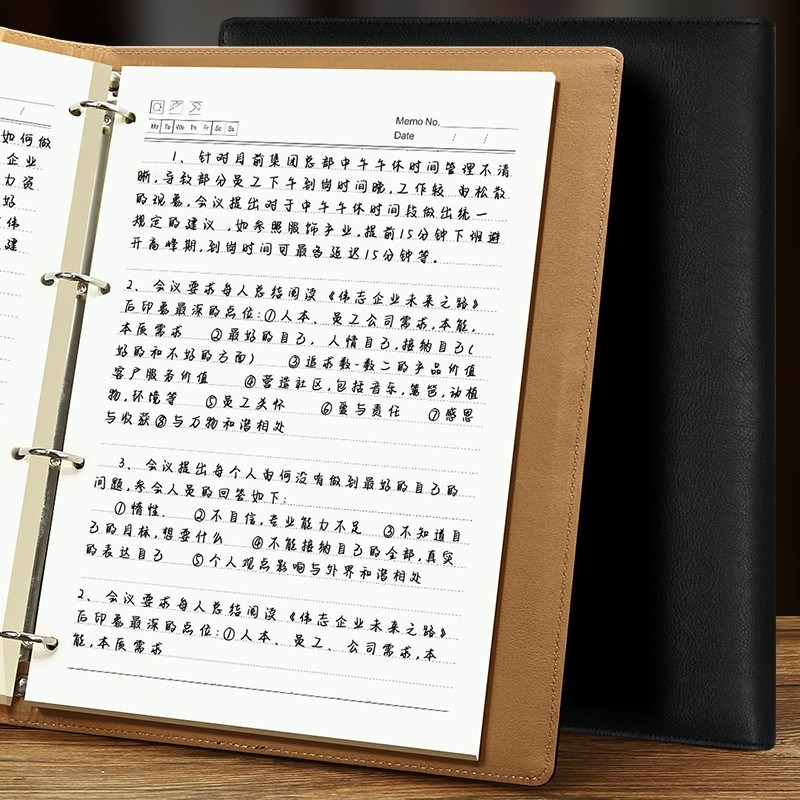 如何做
企业
力资
好
伟
建
Mo Tu We Th Fr Sa Su
Memo No.
Date / /
1、针对目前集团总部中午午休时间管理不清
晰,导致部分员工下午到岗时间晚,工作较 由松散
的现象,会议提出对于中午午休时间段做出统一
规定的建议,如参照服饰产业,提前15分钟下班避
开高峰期,到岗时间可最各延迟15分钟等。
2、会议要求每人总结阅读《伟志企业未来之路》
后印象最深的点位:①人本、员工公司需求,本能,
本质需求 ②最好的自己,人情自己,接纳自己(
好的和不好的方面) ③追求数一数二的产品价值
客户服务价值 ④营造社区,包括音乐,篱笆,动植
物,环境等 ⑤员工关怀 ⑥爱与责任 ⑦感恩
与收获⑧与万物和谐相处
3、会议提出每个人由何没有做到最好的自己的
问题,参会人员的回答如下:
①惰性. ②不自信,专业能力不足 ③不知道自
己的目标,想要什么 ④不能接纳自己的全部,真实
的表达自己 ⑤个人观点影响与外界和谐相处
2、会议要求每人总结阅读《伟志企业未来之路》
后印象最深的点位:①人本、员工、公司需求,本
能,本质需求